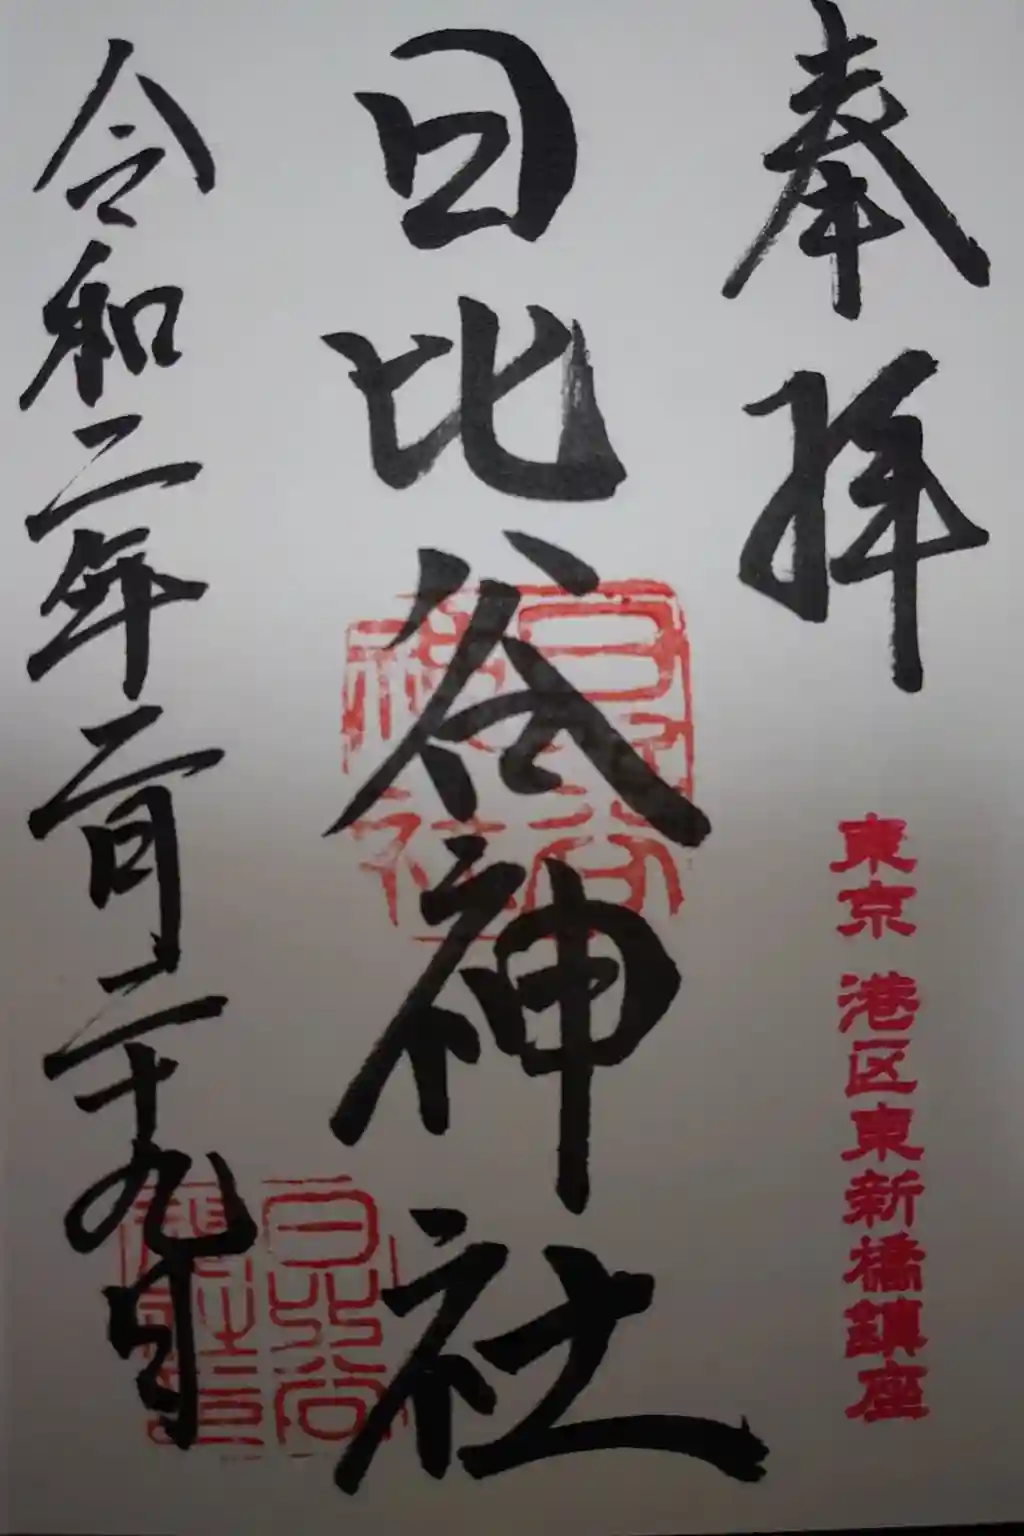 奉拝
東京 港区東新橋鎮座
日比谷神社
日比谷神社
令和二年二月二十九日